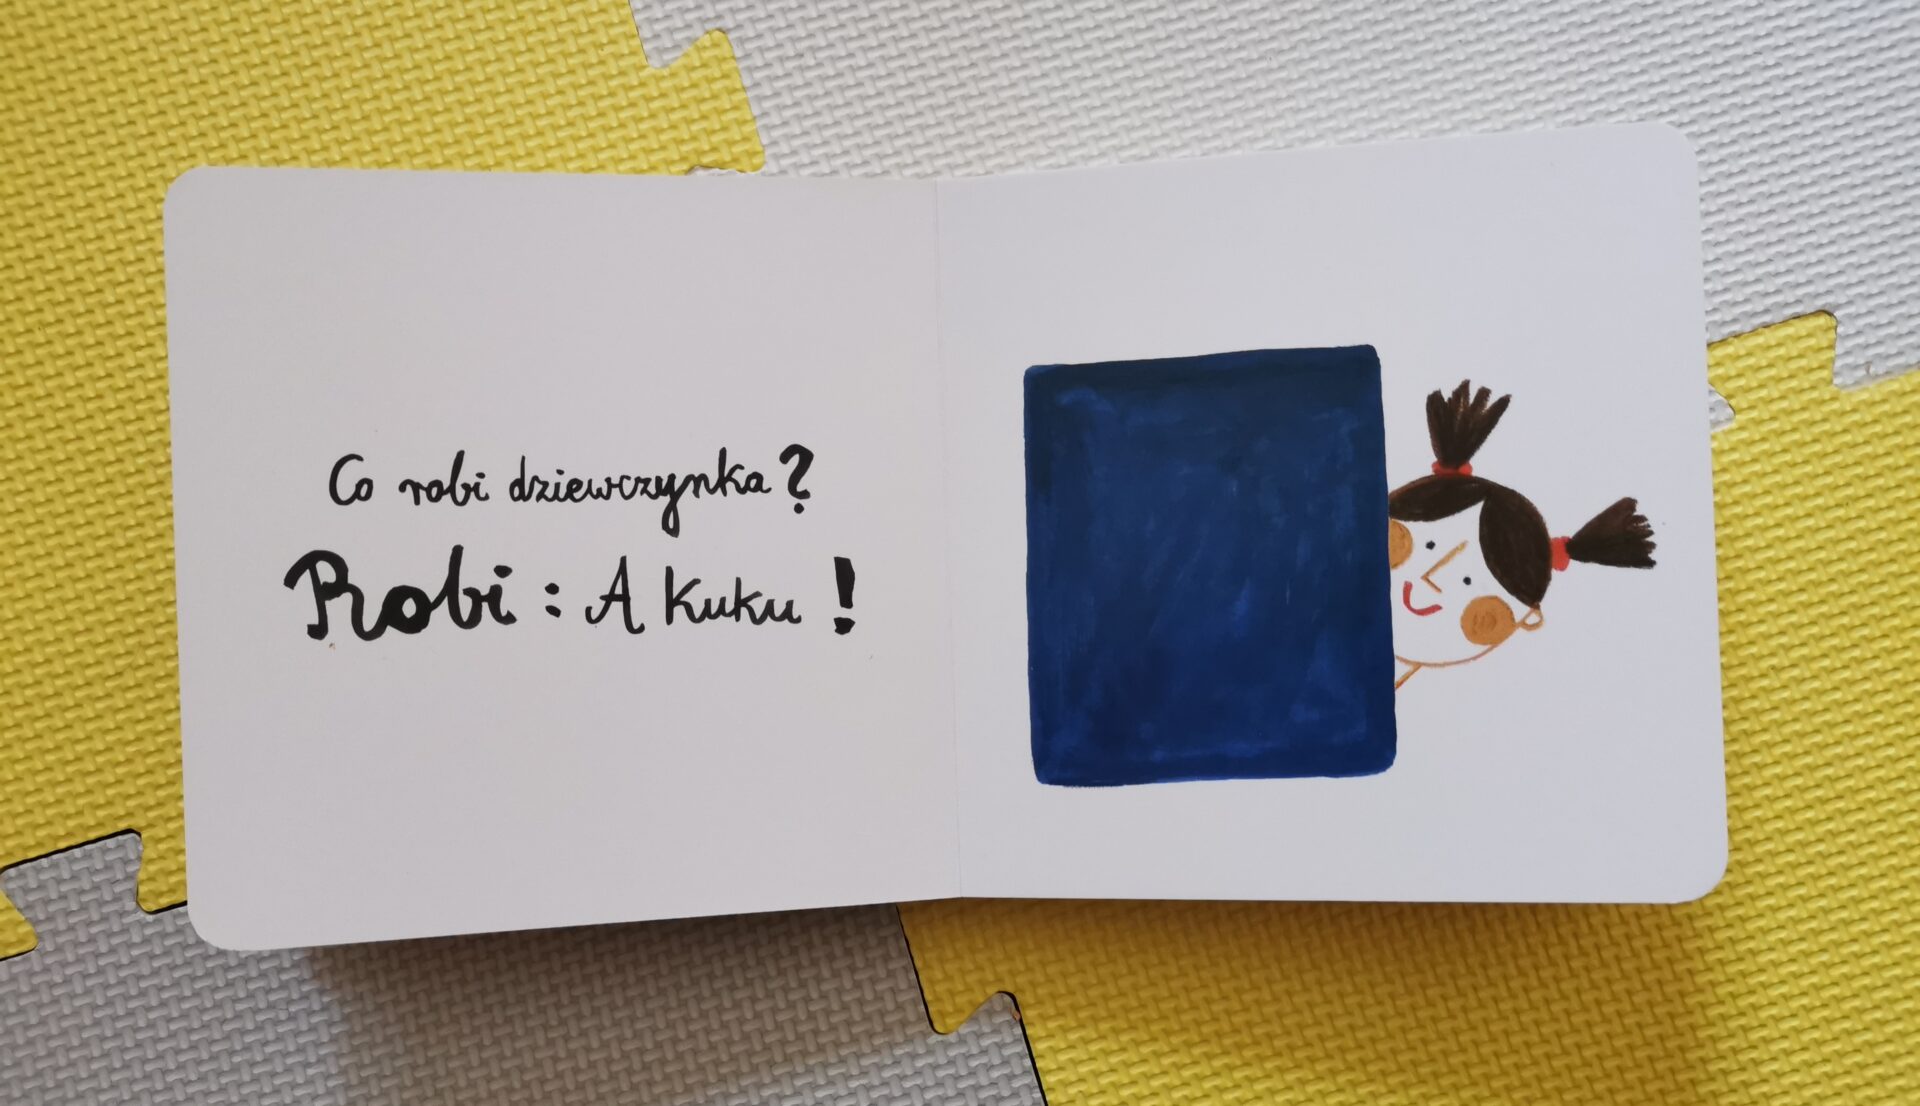 Co robi dziewczynka?
Robi: A kuku!